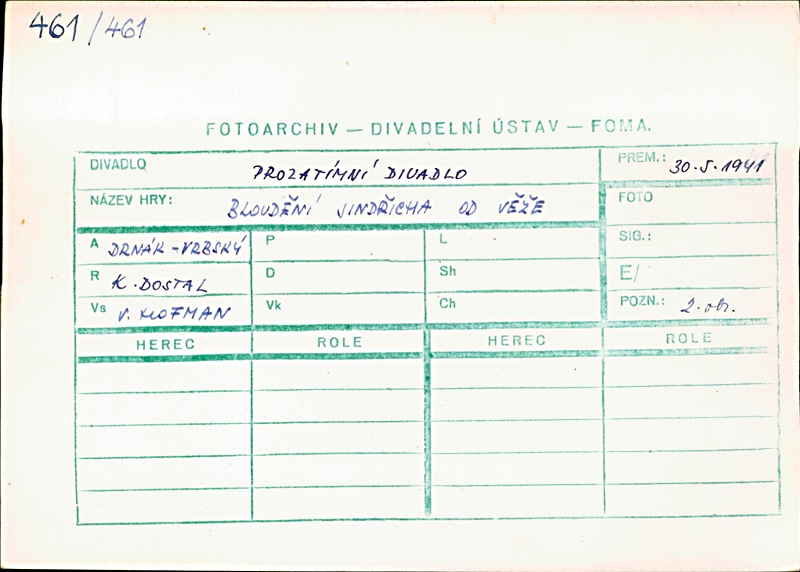 461/461
FOTOARCHIV — DIVADELNÍ ÚSTAV — FOMA.
DIVADLO PROZATÍMNÍ DIVADLO PREM.: 30.5.1941
NÁZEV HRY: BLOUDĚNÍ JINDŘICHA OD VĚŽE FOTO
A DRNÁK-VRBSKÝ P L SIG.:
R K. DOSTAL D Sh E/
Vs V. HOFMAN Vk Ch POZN.: 2. obr.
HEREC ROLE HEREC ROLE